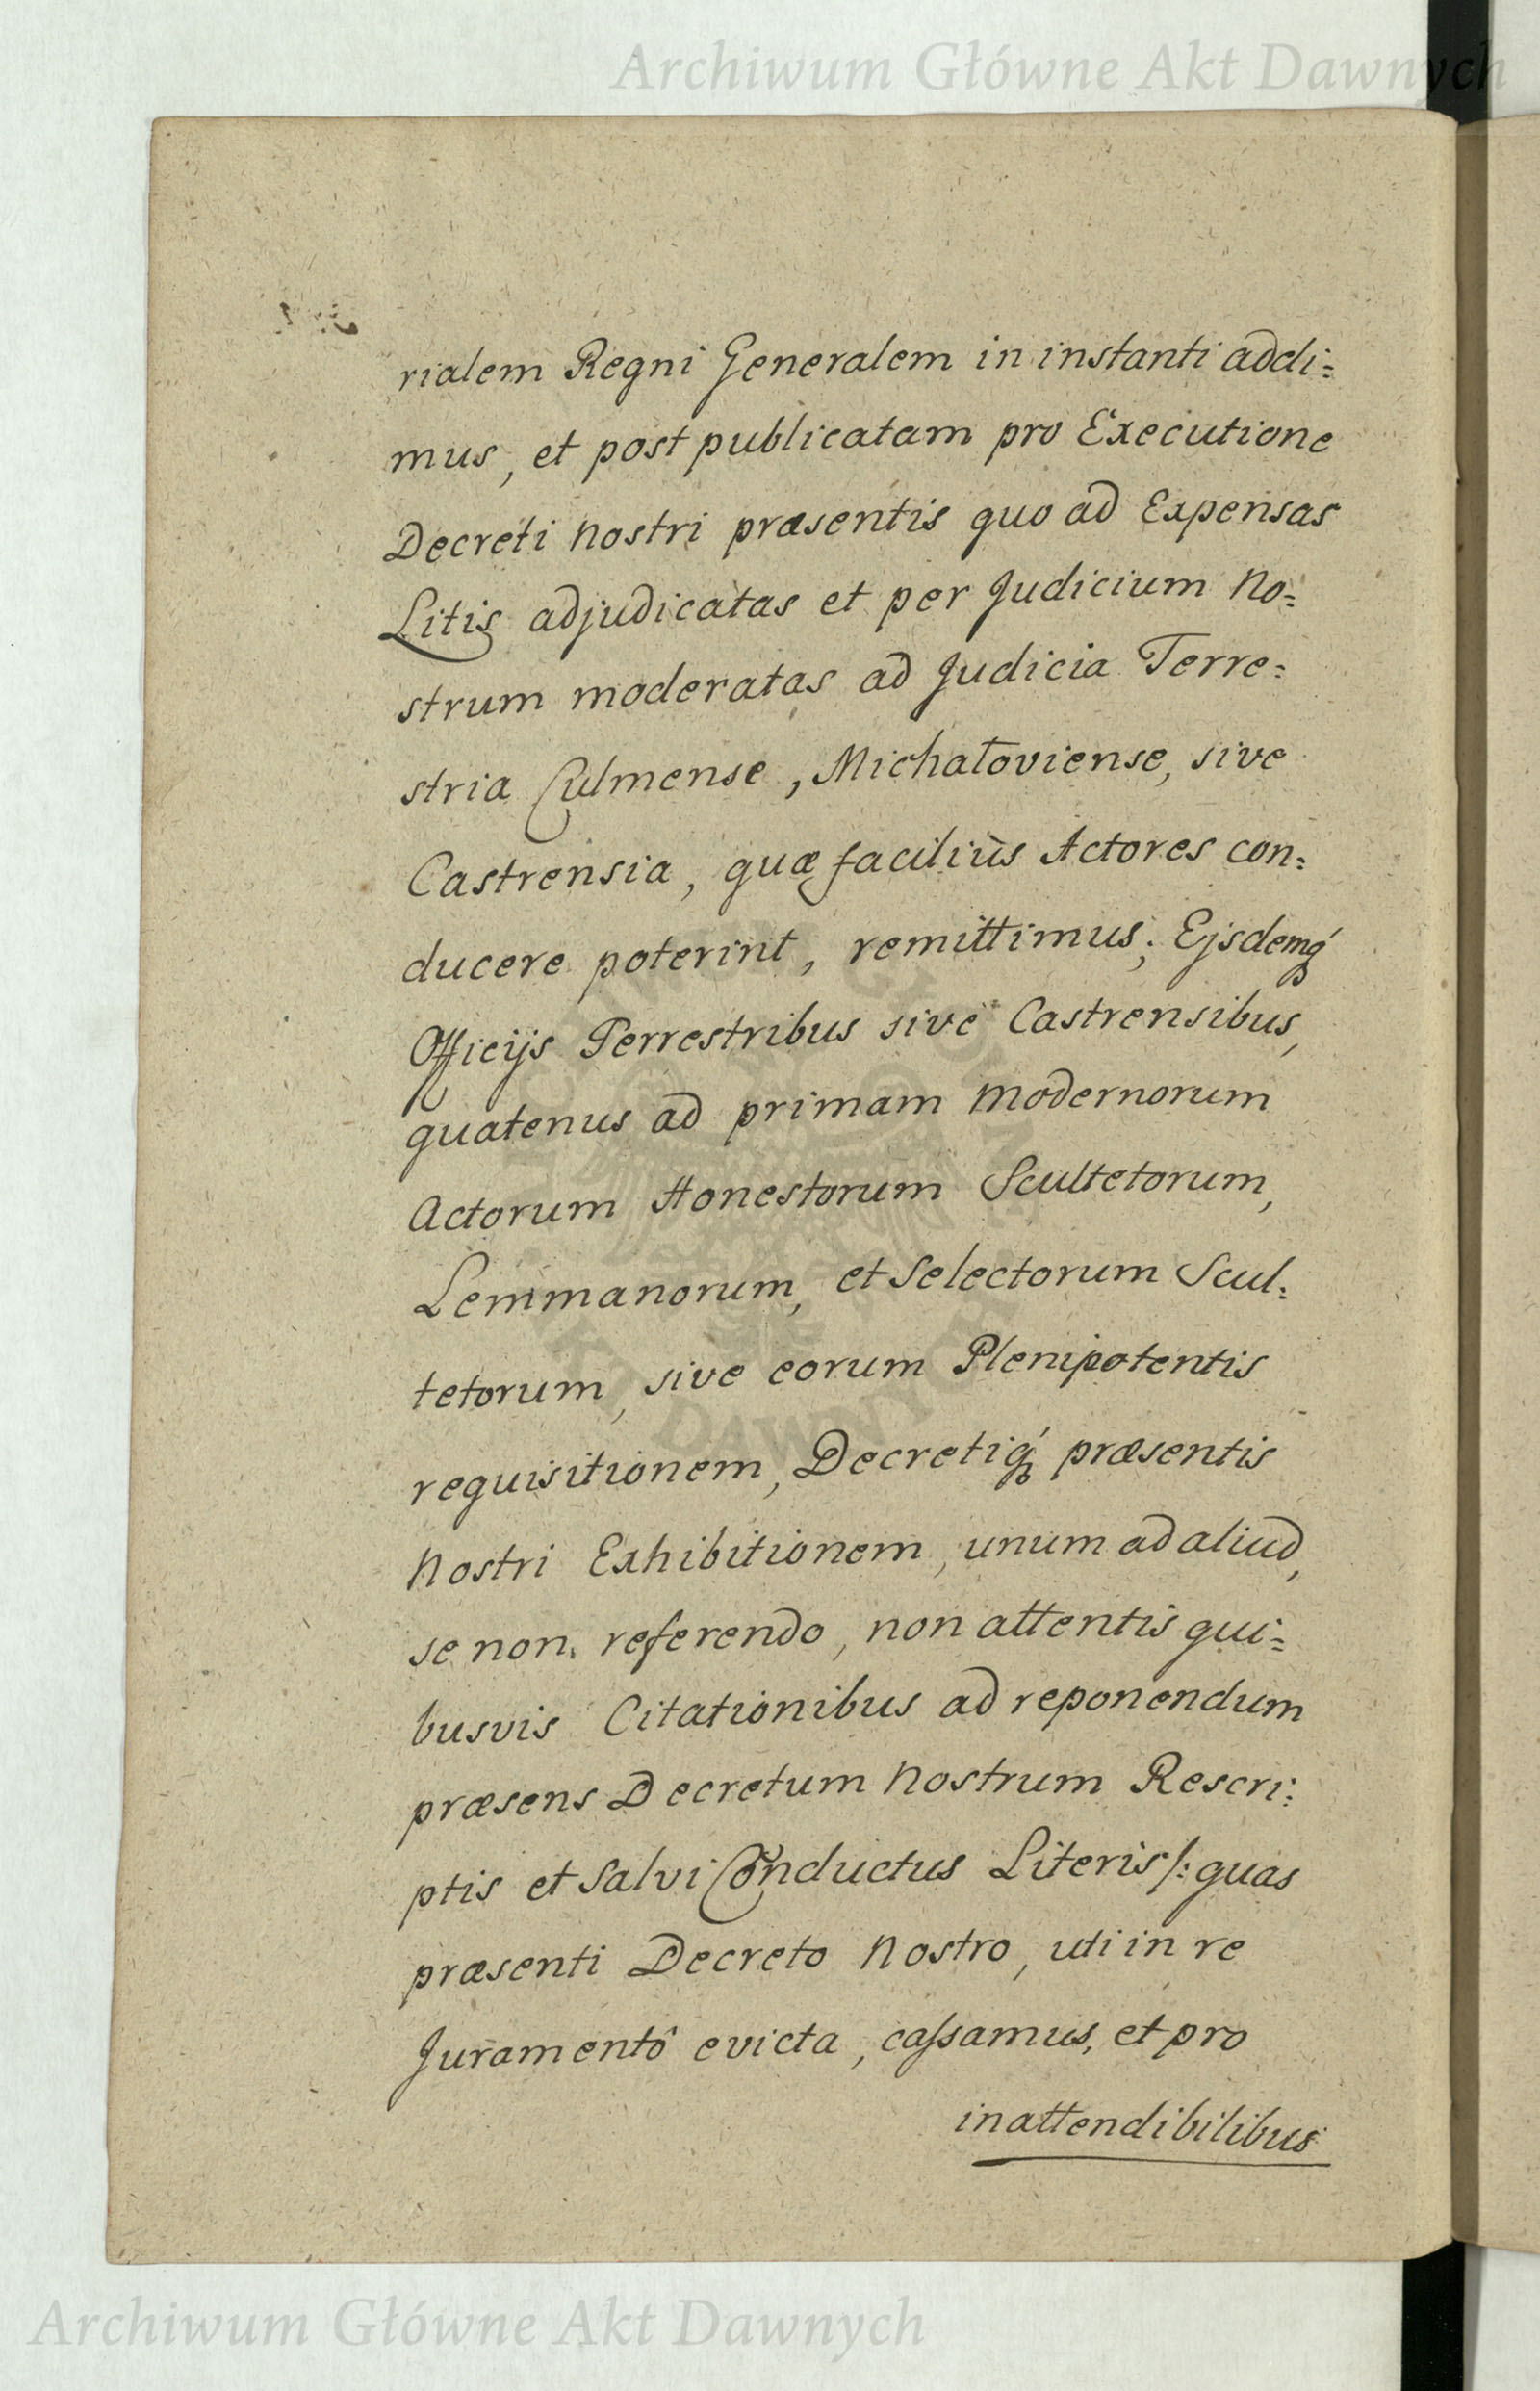 Archiwum Główne Akt Dawnych
rialem Regni Generalem in instanti addi=
mus, et post publicatam pro Executione
Decreti Nostri præsentis quo ad Expensas
Litis adjudicatas et per Judicium No=
strum moderatas ad Judicia Terre=
stria Culmense, Michałoviense, sive
Castrensia, quæ faciliùs Actores con=
ducere poterint, remittimus; Ejsdemq́
Officijs Terrestribus sive Castrensibus,
quatenus ad primam Modernorum
Actorum Honestorum Scultetorum,
Lemmanorum, et Selectorum Scul=
tetorum, sive eorum Plenipotentis
requisitionem, Decretiq́ præsentis
Nostri Exhibitionem, unum ad aliud,
se non referendo, non attentis qui=
busvis Citationibus ad reponendum
præsens Decretum Nostrum Rescri=
ptis et Salvi Conductus Literis /: quas
præsenti Decreto Nostro, uti in re
Juramentô evicta, caſsamus, et pro
inattendibilibus
Archiwum Główne Akt Dawnych